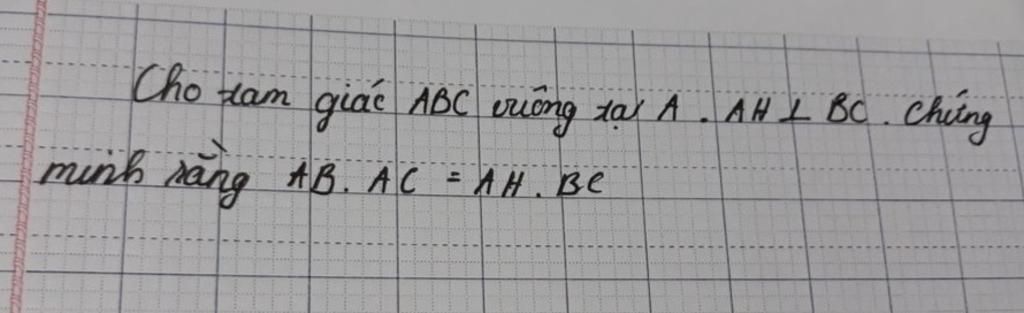 Cho tam giác ABC vuông tại A. AH ⊥ BC. Chứng
minh rằng AB. AC = AH. BC